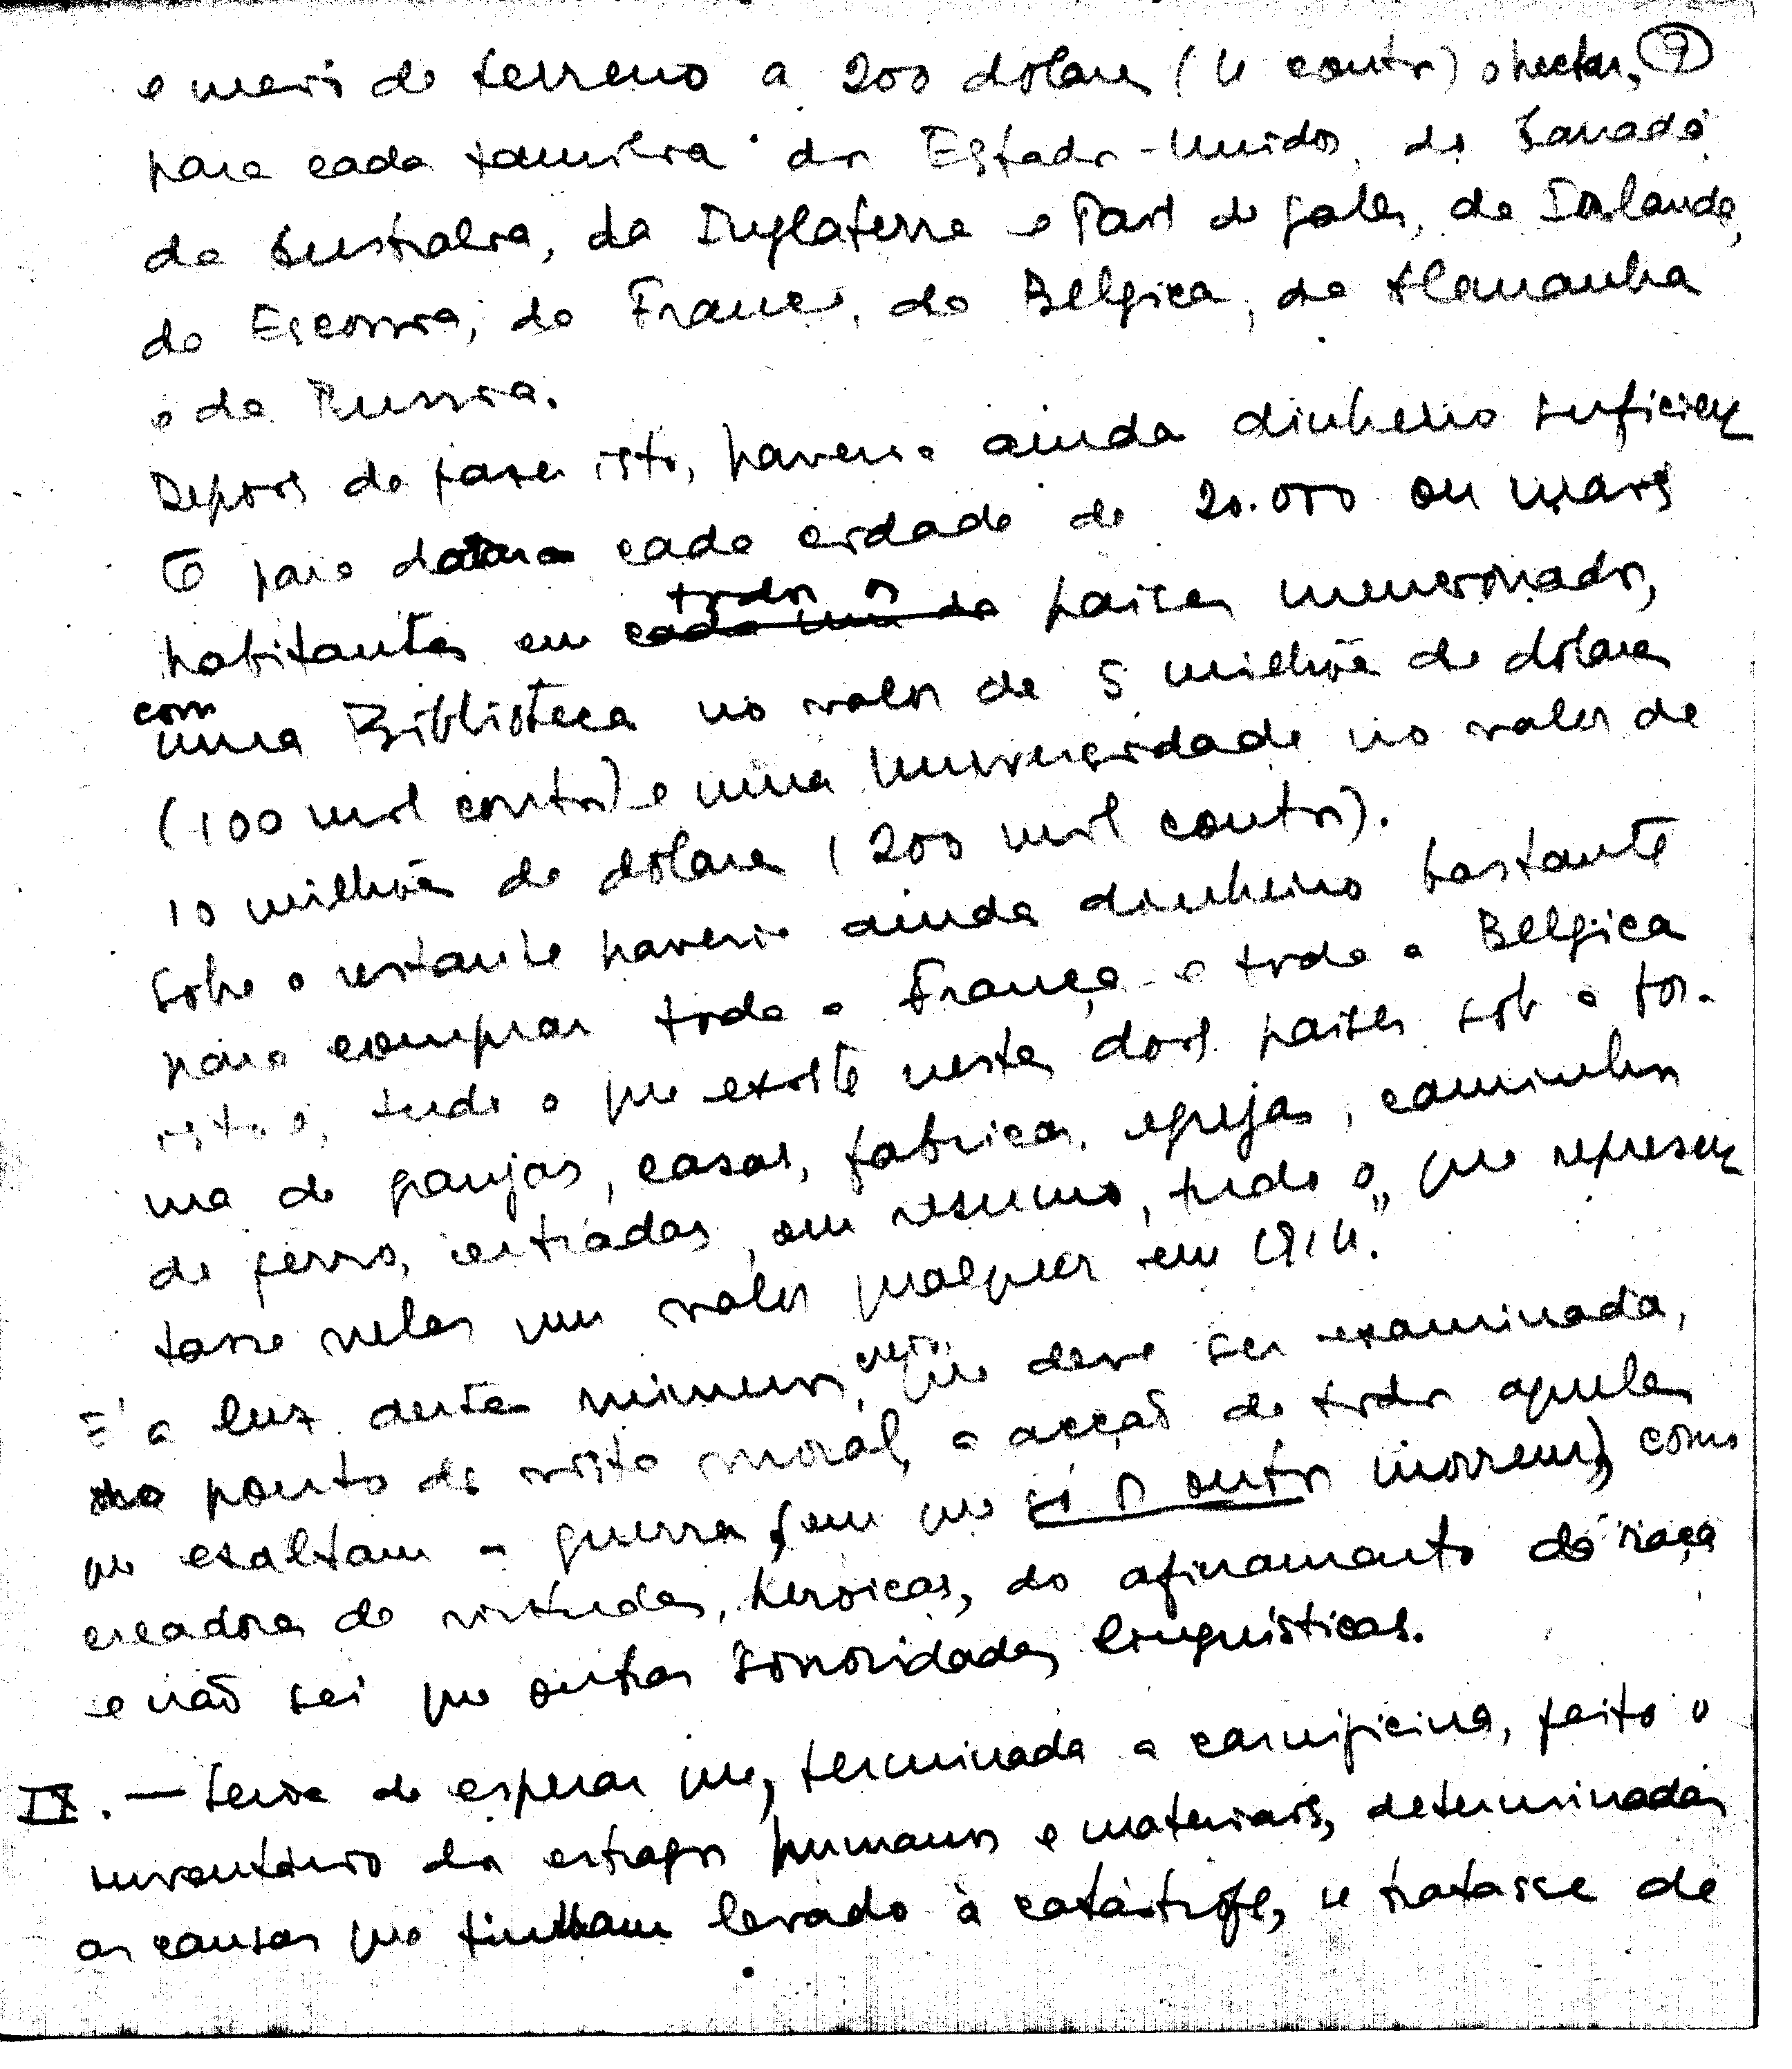 e meio de terreno a 200 dolares (4 contos) o hectar, 9
para cada familia dos Estados-Unidos, do Canadá,
da Australia, da Inglaterra e Pais de Gales, da Irlanda,
da Escossia, da França, da Belgica, da Alemanha
e da Russia.
Depois de fazer isto, haveria ainda dinheiro suficien
te para dotar cada cidade de 20.000 ou mais
habitantes em cada um dos todos os paises mencionados,
com uma Biblioteca no valor de 5 milhões de dolares
(100 mil contos) e uma Universidade no valor de
10 milhões de dolares (200 mil contos).
Sobre o restante haveria ainda dinheiro bastante
para comprar toda a França e toda a Belgica
isto é, tudo o que existe nestes dois paises sob a for-
ma de granjas, casas, fabricas, egrejas, caminhos
de ferro, estradas, em resumo, tudo o que represen
tasse nelas um valor qualquer em 1914."
E' á luz destes numeros, que deve ser examinada,
no ponto de vista moral, a acção de todos aqueles
que exaltam a guerra (em que só os outros morrem), como
creadora de virtudes, heroicas, do afinamento da raça
e não sei que outras sonoridades linguísticas.
IX. — Seria de esperar que, terminada a carnificina, feito o
inventário dos estragos humanos e materiais, determinadas
as causas que tinham levado à catástrofe, se tratasse de